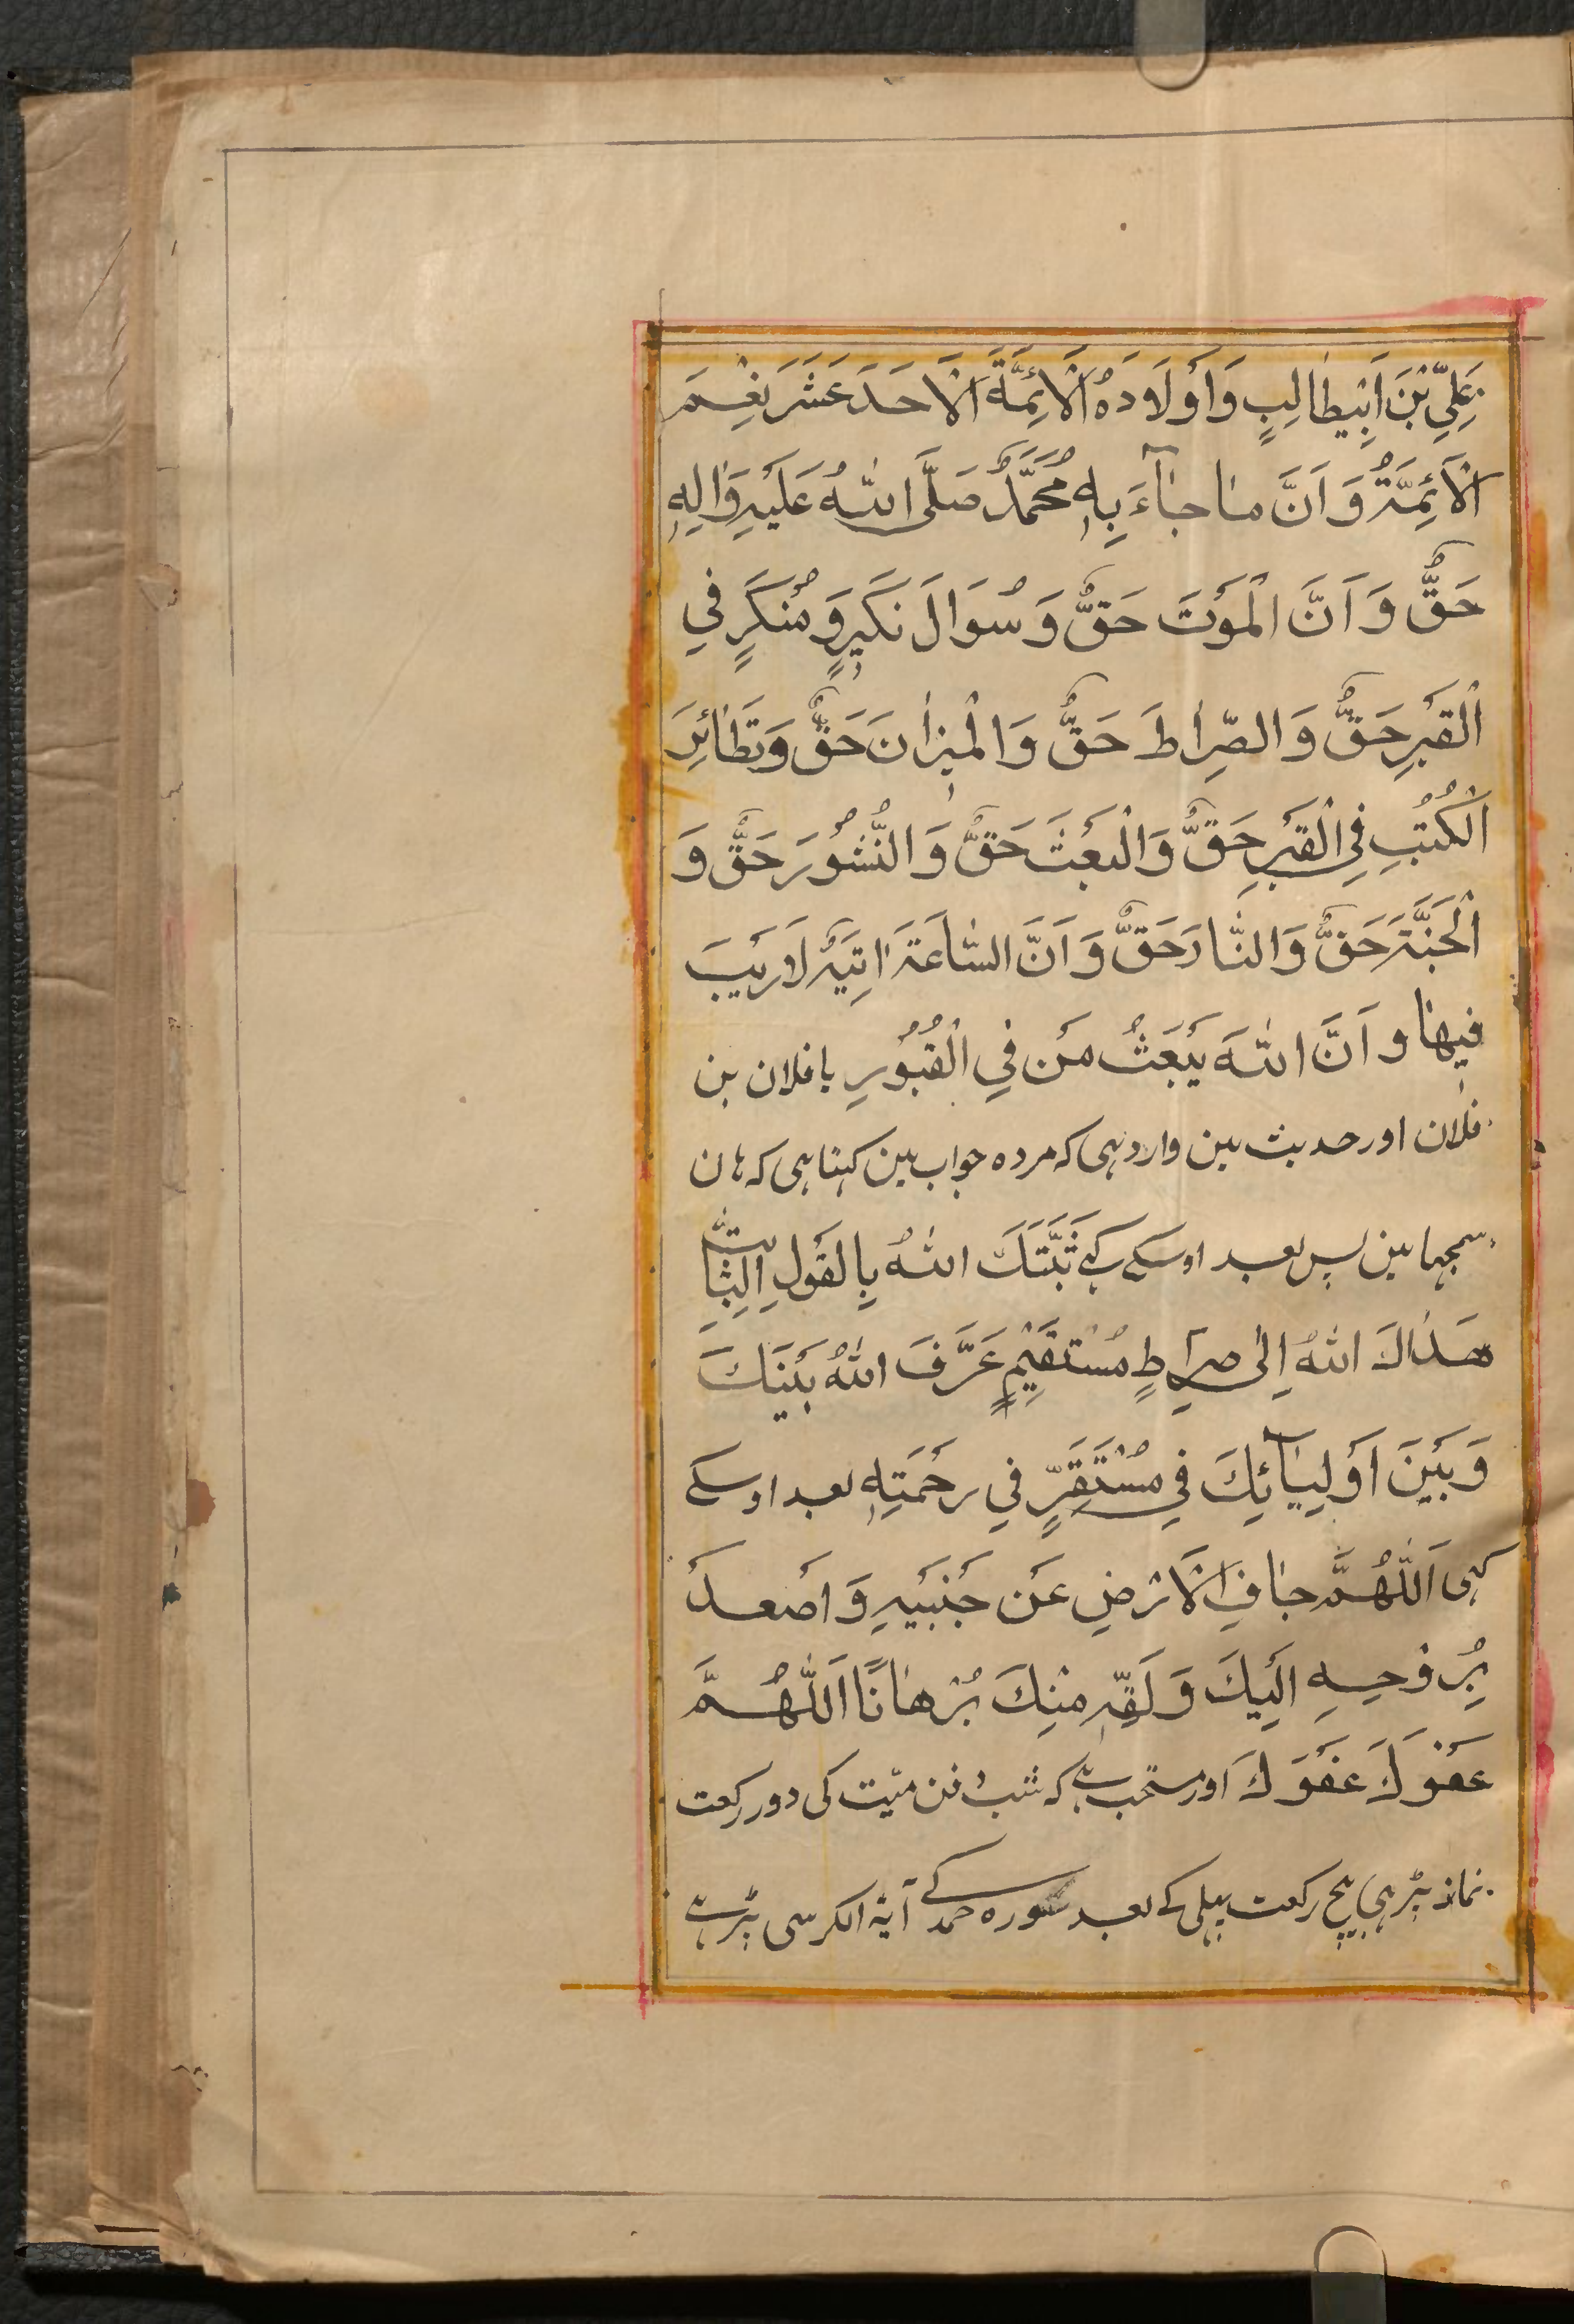 عَلِيَّ بْنَ اَبِيطٰالِبٍ وَاَوْلَادَهُ الْاَئِمَّةَ الْاَحَدَ عَشَرَ نِعْمَ
الْاَئِمَّةُ وَ اَنَّ مٰا جٰآءَ بِهٖ مُحَمَّدٌ صَلَّى اللّٰهُ عَلَيْهِ وَاٰلِهٖ
حَقٌّ وَ اَنَّ الْمَوْتَ حَقٌّ وَ سُوَالَ نَكٖيرٍ وَ مُنْكَرٍ فِي
الْقَبْرِ حَقٌّ وَ الصِّرٰاطَ حَقٌّ وَ الْمٖيزٰانَ حَقٌّ وَ تَطٰائِرَ
الْكُتُبِ فِي الْقَبْرِ حَقٌّ وَ الْبَعْثَ حَقٌّ وَ النُّشُوْرَ حَقٌّ وَ
الْجَنَّةَ حَقٌّ وَ النّٰارَ حَقٌّ وَ اَنَّ السّٰاعَةَ اٰتِيَةٌ لَارَيْبَ
فٖيهٰا و اَنَّ اللّٰهَ يَبْعَثُ مَنْ فِي الْقُبُوْرِ يا فلان بن
فلان اور حديث مين وارد هى كه مرده جواب مين كهتا هى كه هان
سمجها مين پس بعد اوسكے كہے ثَبَّتَكَ اللّٰهُ بِالْقَوْلِ الثّٰابِتِ
هَدٰاكَ اللّٰهُ اِلٰى صِرٰاطٍ مُسْتَقٖيْمٍ عَرَّفَ اللّٰهُ بَيْنَكَ
وَ بَيْنَ اَوْلِيٰآئِكَ فِي مُسْتَقَرٍّ فِي رَحْمَتِهٖ بعد اوسكے
كہى اَللّٰهُمَّ جٰافِ الْاَرْضِ عَنْ جَنْبَيْهِ وَ اَصْعِدْ
بِرُوْحِهِ اِلَيْكَ وَ لَقِّهٖ مِنْكَ بُرْهٰانًا اَللّٰهُمَّ
عَفْوَكَ عَفْوَكَ اور مستحب ہے كه شب دفن ميّت كى دو ركعت
نماز پڑہى بيچ ركعت پہلى كے بعد سوره حمد كے آية الكرسى پڑہے